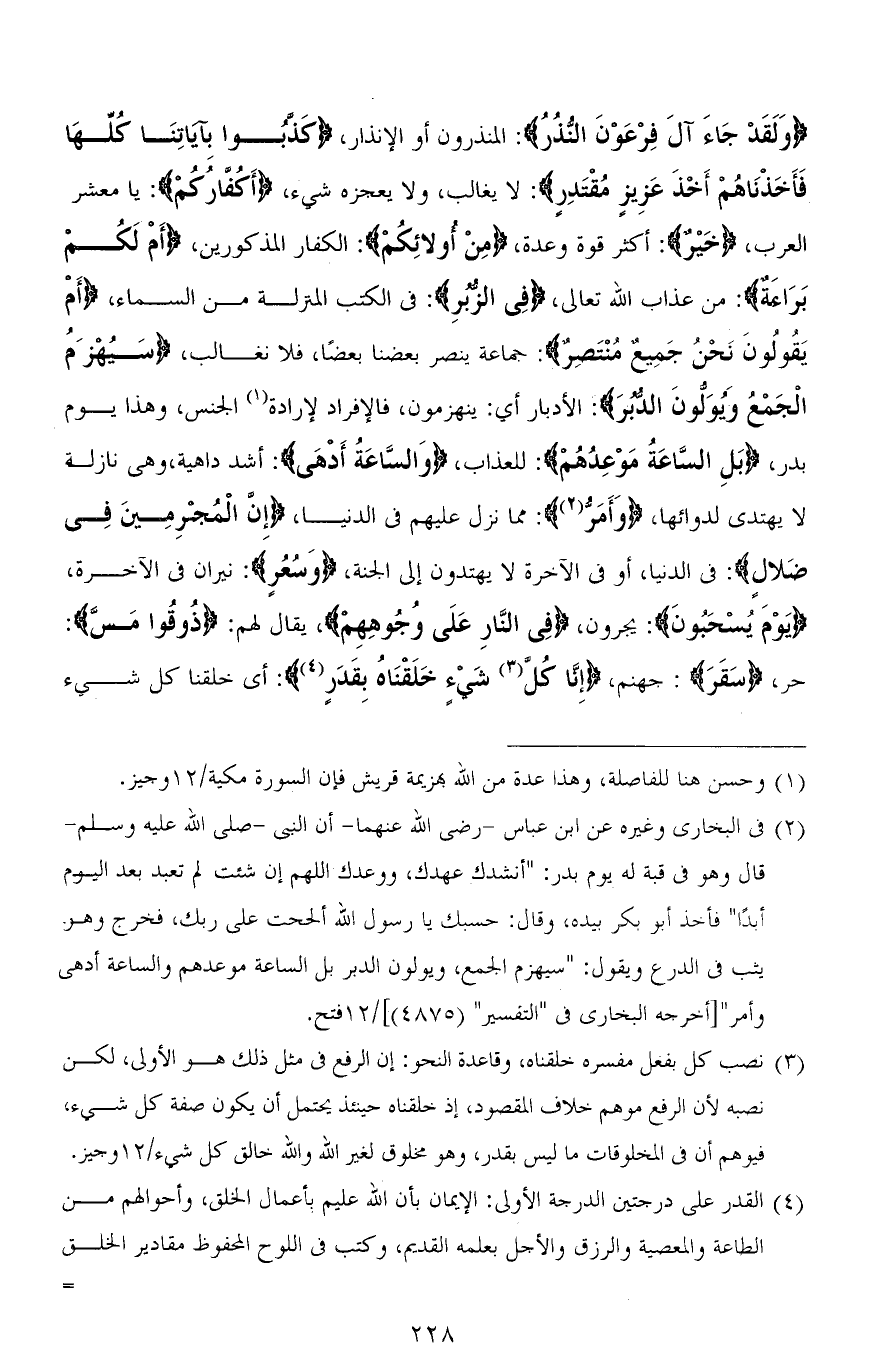 ﴿وَلَقَدْ جَاءَ آلَ فِرْعَوْنَ النُّذُرُ﴾: المنذرون أو الإنذار، ﴿كَذَّبُوا بِآيَاتِنَا كُلِّهَا
فَأَخَذْنَاهُمْ أَخْذَ عَزِيزٍ مُقْتَدِرٍ﴾: لا يغالب، ولا يعجزه شيء، ﴿أَكُفَّارُكُمْ﴾: يا معشر
العرب، ﴿خَيْرٌ﴾: أكثر قوة وعدة، ﴿مِنْ أُولائِكُمْ﴾: الكفار المذكورين، ﴿أَمْ لَكُمْ
بَرَاءَةٌ﴾: من عذاب الله تعالى، ﴿فِي الزُّبُرِ﴾: فى الكتب المنزلة من السماء، ﴿أَمْ
يَقُولُونَ نَحْنُ جَمِيعٌ مُنْتَصِرٌ﴾: جماعة ينصر بعضنا بعضًا، فلا نغالب، ﴿سَيُهْزَمُ
الْجَمْعُ وَيُوَلُّونَ الدُّبُرَ﴾: الأدبار أي: ينهزمون، فالإفراد لإرادة(١) الجنس، وهذا يوم
بدر، ﴿بَلِ السَّاعَةُ مَوْعِدُهُمْ﴾: للعذاب، ﴿وَالسَّاعَةُ أَدْهَى﴾: أشد داهية،وهى نازلة
لا يهتدى لدوائها، ﴿وَأَمَرُّ(٢)﴾: مما نزل عليهم فى الدنيا، ﴿إِنَّ الْمُجْرِمِينَ فِي
ضَلالٍ﴾: فى الدنيا، أو فى الآخرة لا يهتدون إلى الجنة، ﴿وَسُعُرٍ﴾: نيران فى الآخرة،
﴿يَوْمَ يُسْحَبُونَ﴾: يجرون، ﴿فِي النَّارِ عَلَى وُجُوهِهِمْ﴾، يقال لهم: ﴿ذُوقُوا مَسَّ﴾:
حر، ﴿سَقَرَ﴾ : جهنم، ﴿إِنَّا كُلَّ(٣) شَيْءٍ خَلَقْنَاهُ بِقَدَرٍ(٤)﴾: أى خلقنا كل شيء
(١) وحسن هنا للفاصلة، وهذا عدة من الله بهزيمة قريش فإن السورة مكية/١٢وجيز.
(٢) فى البخارى وغيره عن ابن عباس -رضى الله عنهما- أن النبى -صلى الله عليه وسلم-
قال وهو فى قبة له يوم بدر: "أنشدك عهدك، ووعدك اللهم إن شئت لم تعبد بعد اليوم
أبدًا" فأخذ أبو بكر بيده، وقال: حسبك يا رسول الله ألححت على ربك، فخرج وهو
يثب فى الدرع ويقول: "سيهزم الجمع، ويولون الدبر بل الساعة موعدهم والساعة أدهى
وأمر"[أخرجه البخارى فى "التفسير" (٤٨٧٥)]/١٢فتح.
(٣) نصب كل بفعل مفسره خلقناه، وقاعدة النحو: إن الرفع فى مثل ذلك هو الأولى، لكن
نصبه لأن الرفع موهم خلاف المقصود، إذ خلقناه حينئذ يحتمل أن يكون صفة كل شيء،
فيوهم أن فى المخلوقات ما ليس بقدر، وهو مخلوق لغير الله والله خالق كل شيء/١٢وجيز.
(٤) القدر على درجتين الدرجة الأولى: الإيمان بأن الله عليم بأعمال الخلق، وأحوالهم من
الطاعة والمعصية والرزق والأجل بعلمه القديم، وكتب فى اللوح المحفوظ مقادير الخلق
=
٢٢٨